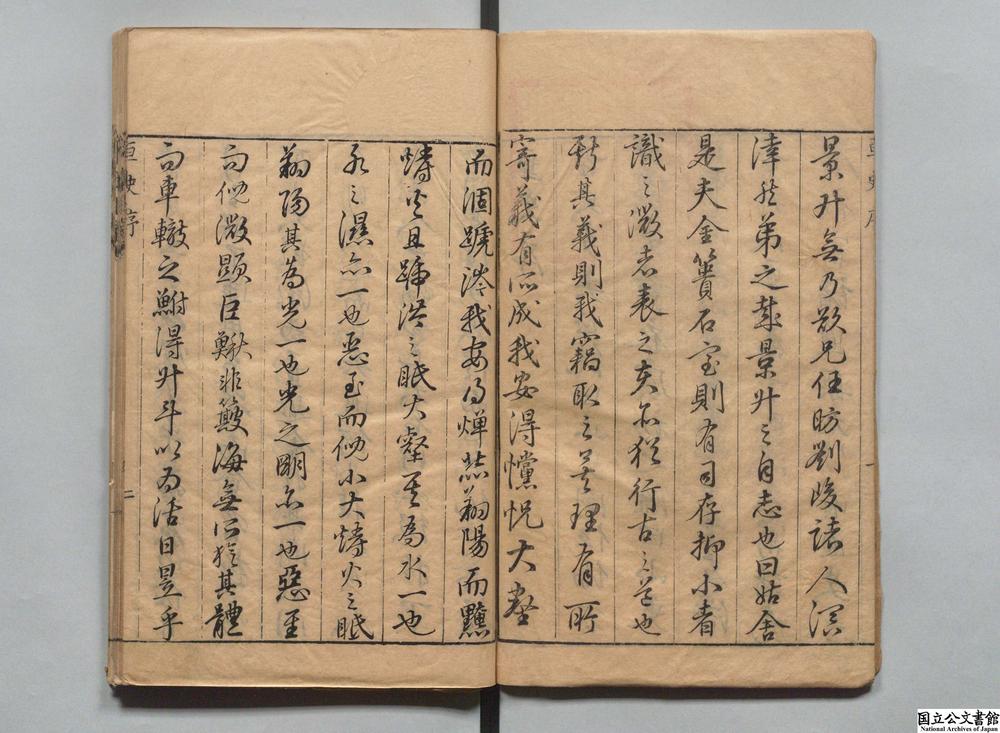 景升無乃欲兄任昉劉峻諸人溟
涬然弟之哉景升之自志也曰姑舍
是夫金簣石室則有司存抑小者
識之微志表之夫亦猶行古之道也
其義則我竊取之其理有所
寄義有所成我安得懭怳大壑
而涸蹏涔我安得燀㷊翔陽而黷
爝火且蹏洪之眂大壑其為水一也
水之濕亦一也惡至而俛小大爝火之眂
翔陽其為光一也光之明亦一也惡至
而俛微顯巨鰍非簸海無所爭其體
而車轍之鮒得升斗以為活日昱乎
亘史序
二
国立公文書館
National Archives of Japan